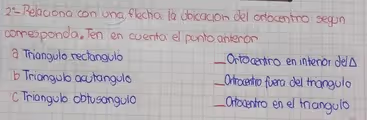 2°- Relaciona con una flecha la ubicación del ortocentro segun
corresponda. Ten en cuenta el punto anterior
a Triangulo rectangulo __Ortocentro en interior del Δ
b Triangulo acutangulo __Ortocentro fuera del triangulo
c Triangulo obtusangulo __Ortocentro en el triangulo